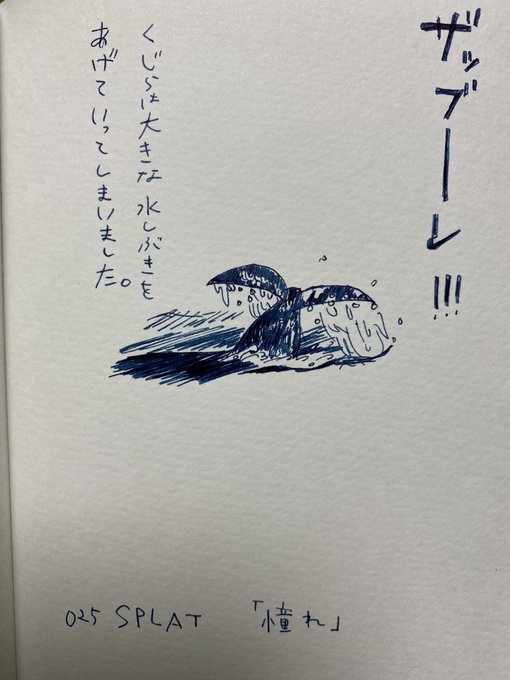 ザッブーン!!!
くじらは大きな水しぶきを
あげていってしまいました。
025 SPLAT 「憧れ」